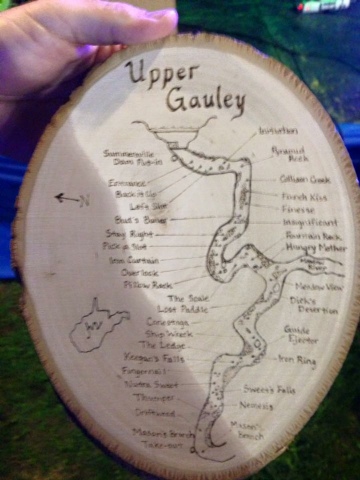 Upper
Gauley
Initiation
Summersville
Dam Put-in
Pyramid
Rock
Entrance
Collison Creek
Back it Up
Left Slot
French Kiss
Finesse
Bud's Boner
Insignificant
Stay Right
Fountain Rock
Pick a Slot
Hungry Mother
Iron Curtain
River
Overlook
Pillow Rack
Meadow View
The Scale
Lost Paddle
Dick's
Desertion
Conestoga
Ship Wreck
Guide
Ejector
The Ledge
Keegac's Falls
Iron Ring
Fingernail
Sweet's Falls
Thumper
Nemesis
Driftwood
Mason's
Branch
Mason's Branch
Take-out
N
WV